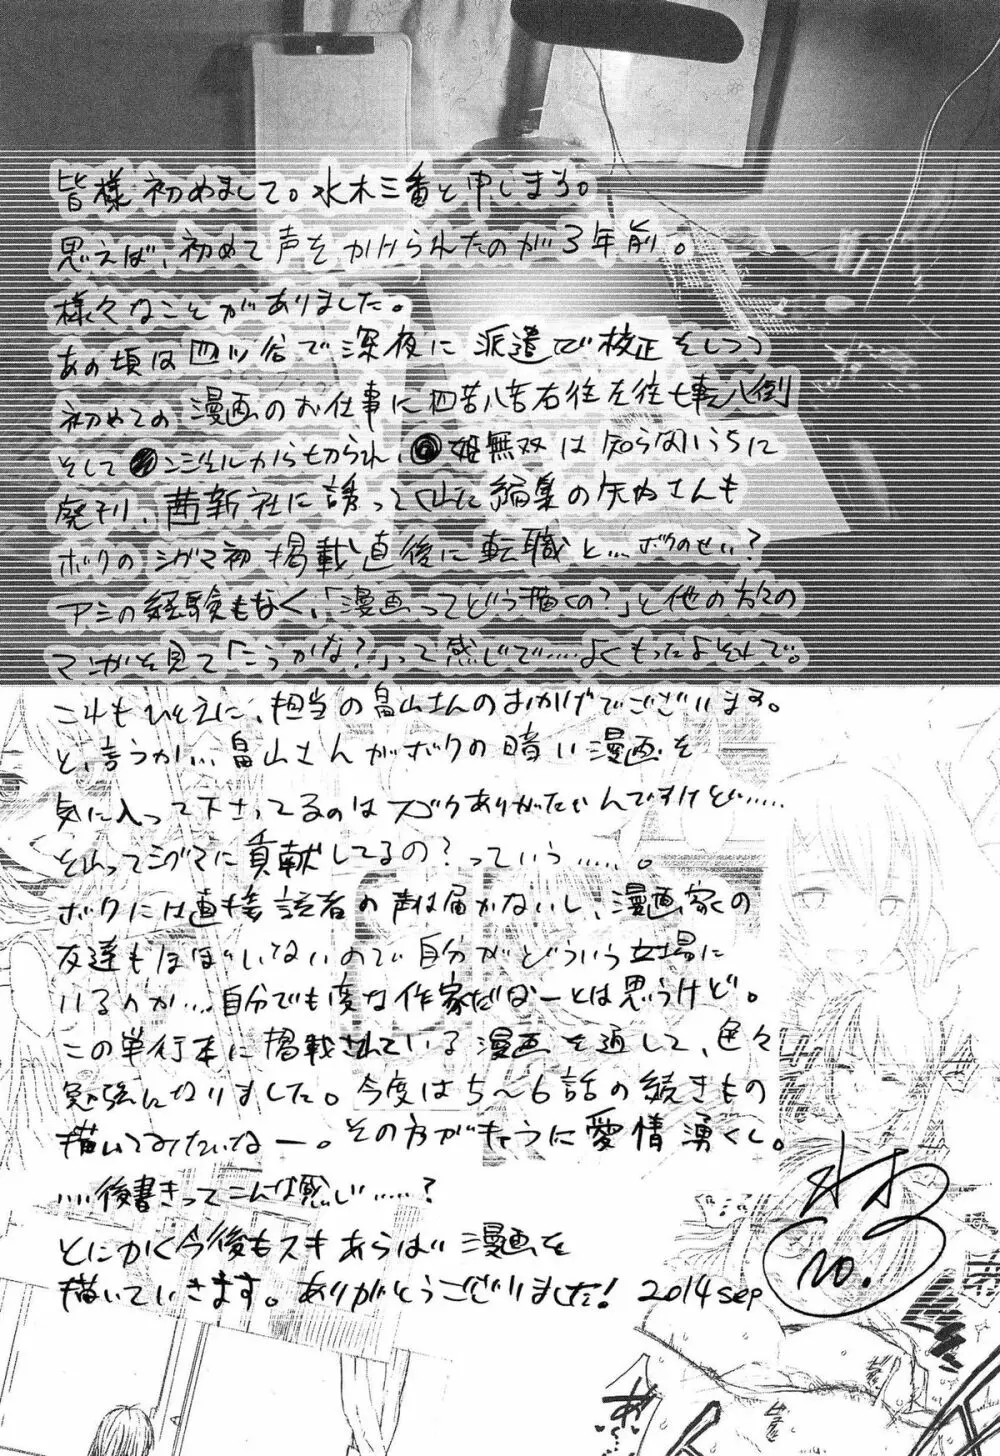 皆様初めまして。水木三番と申しまう。
思えば、初めて声をかけられたのが3年前。
様々なことがありました。
あの頃は四ツ谷で深夜に派遣で校正をしつつ
初めての漫画のお仕事に四苦八苦右往左往七転八倒
そして●ンジェルから切られ、●姫無双は知らないうちに
廃刊、茜新社に誘ってくれた編集の矢内さんも
ボクのシグマ初掲載直後に転職と…ボクのせい?
アシの経験もなく、「漫画ってどう描くの?」と他の方々の
マンガを見て「こうかな?」って感じで……よくもったよそれで。
これもひとえに、担当の畠山さんのおかげでございます。
と、言うか…畠山さんがボクの暗い漫画を
気に入って下さってるのはスゴクありがたいんですけど……
それってシグマに貢献してるの?っていう……。
ボクには直接読者の声は届かないし、漫画家の
友達もほぼいないので自分がどういう立場に
いるのか…自分でも変な作家だなーとは思うけど。
この単行本に掲載されている漫画を通して、色々
勉強になりました。今度は5〜6話の続きもの
描いてみたいなー。その方がキャラに愛情湧くし。
……後書きってこんな感じ……?
とにかく今後もスキあらば漫画を
描いていきます。ありがとうございました! 2014 sep
水木
NO.